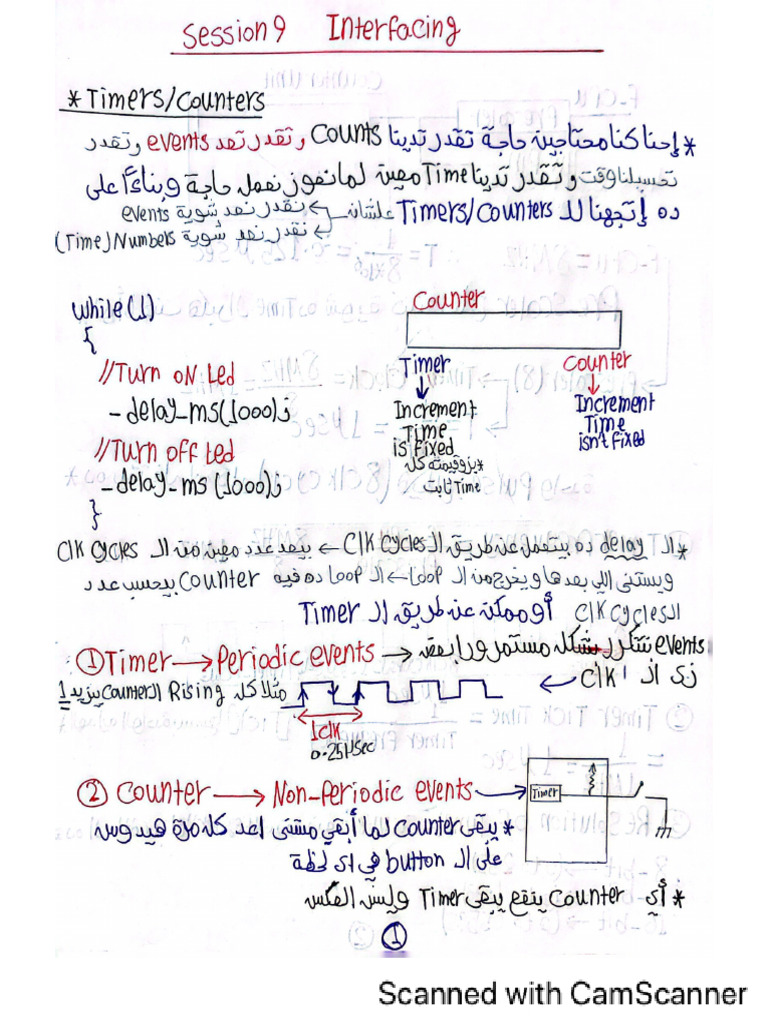 Session 9 Interfacing
* Timers/Counters
* إحنا كنا محتاجين حاجة تقدر تدينا Counts وتقدر تعد events وتقدر
تحسبلنا وقت وتقدر تدينا Time معين لما نعوز نعمل حاجة وبناءً على
ده إتجهنا للـ Timers/Counters علشان نقدر نعد شوية events
نقدر نعد شوية Numbers (Time)
while(1)
{
//Turn ON Led
-delay_ms(1000);
//Turn off Led
-delay_ms(1000);
}
Counter
Timer
Increment
Time
is fixed
* بزود قيمته كل
Time ثابت
Counter
Increment
Time
isn't fixed
* الـ delay ده بيتعمل عن طريق الـ Clk Cycles ← بيعد عدد معين من الـ Clk Cycles
ويستنى اللي بعدها ويخرج من الـ Loop ← الـ Loop ده فيه Counter بيحسب عدد
الـ Clk Cycles أو ممكن عن طريق الـ Timer
① Timer → Periodic events → events تتكرر بشكل مستمر ورا بعضه
زي الـ Clk
مثلا كل Rising الـ Counter يزيد 1
1 clk
0.25 μSec
② Counter → Non-Periodic events →
Timer
* يبقى Counter لما أبقي مستنى اعد كل مرة هيدوس
على الـ button في اي لحظة
* أي Counter ينفع يبقى Timer وليس العكس
1
Scanned with CamScanner